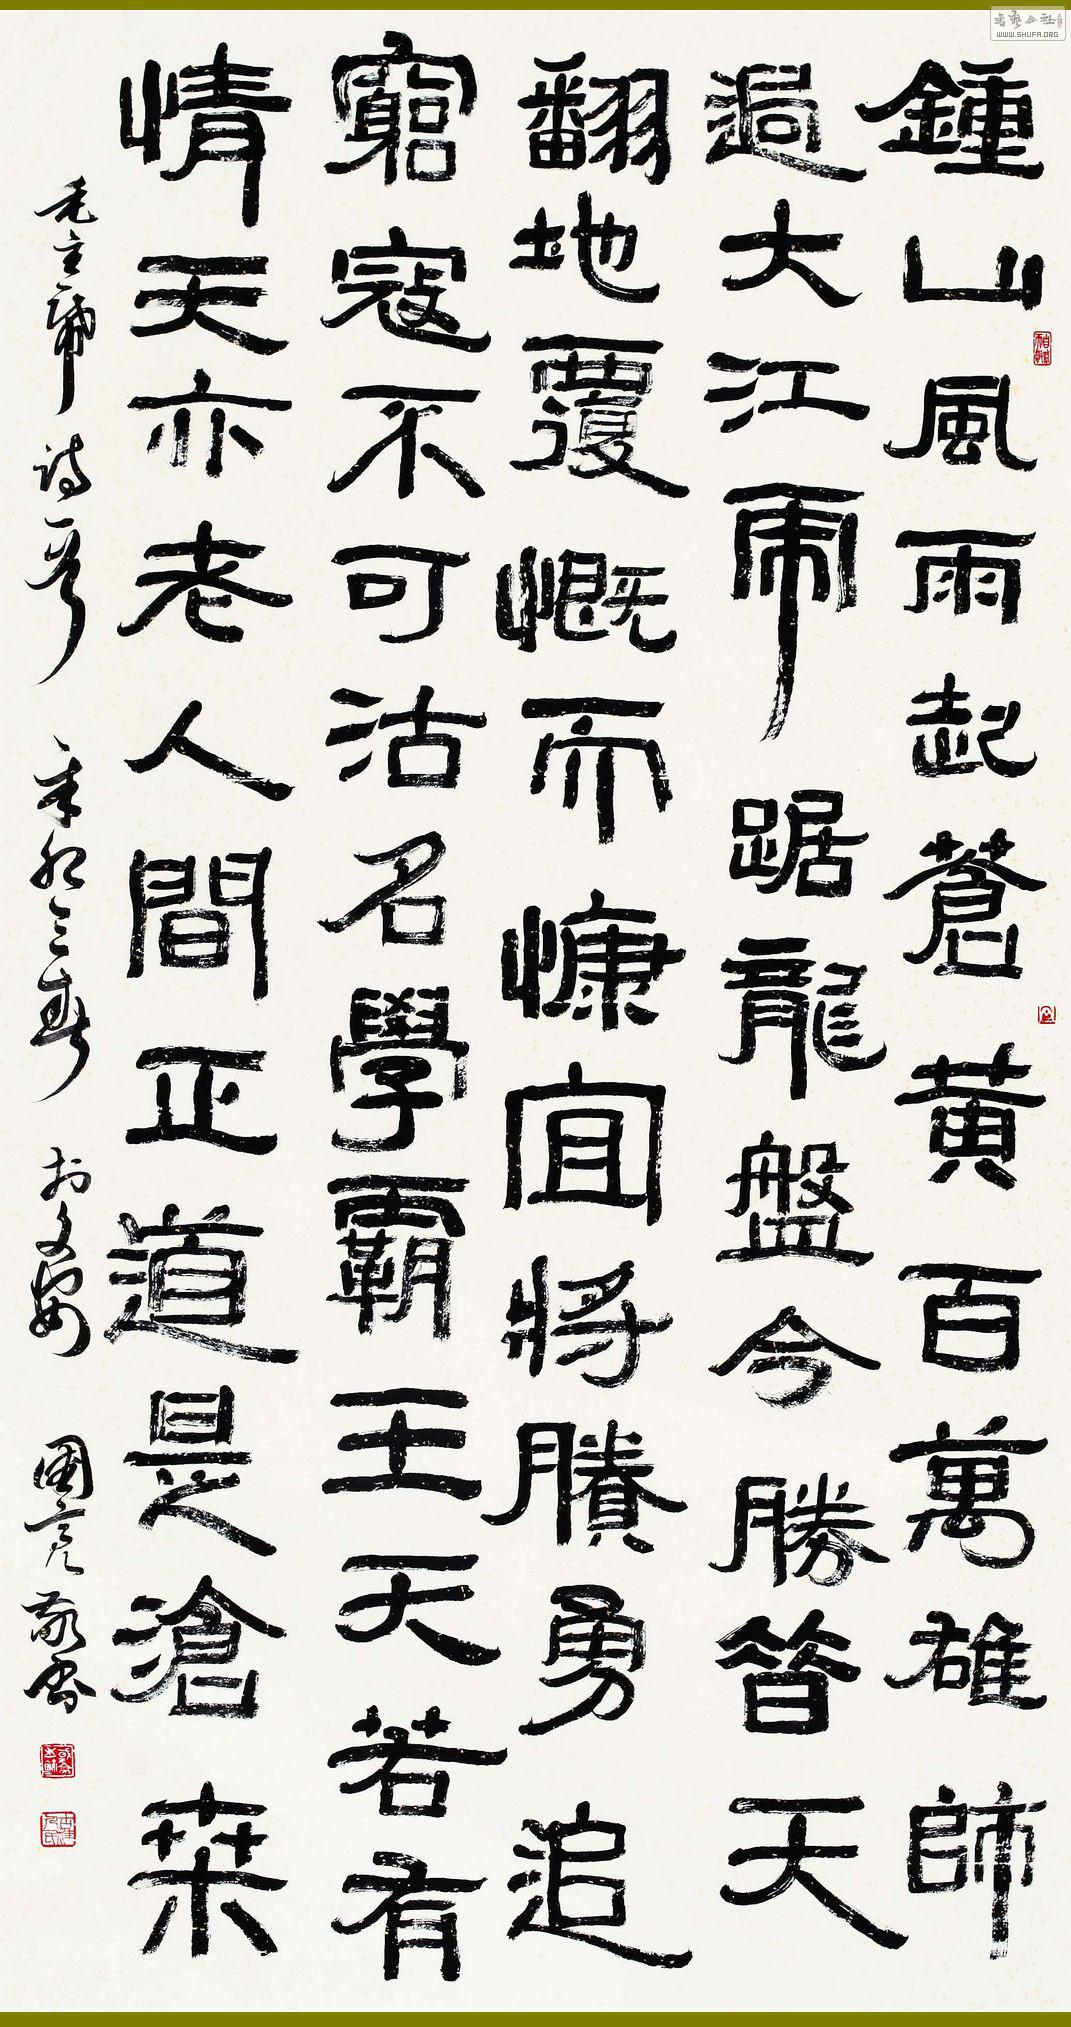 鍾山風雨起蒼黄百萬雄師
過大江虎踞龍盤今勝昔天
翻地覆慨而慷宜將賸勇追
窮寇不可沽名學霸王天若有
情天亦老人間正道是滄桒
毛主席詩一首 辛卯之春 於文安 國亮敬書
書藝公社
WWW.SHUFA.ORG